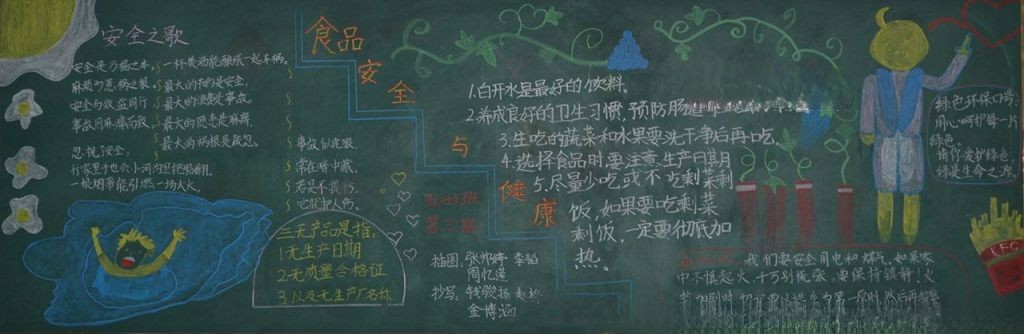 安全之歌
安全是万福之本,
麻痹乃患祸之根。
安全与效益同行,
事故同麻痹而致。
忽视安全,
行家里手也会小河沟里把船翻。
一根烟蒂能引燃一场大火,
一杯美酒能酿成一起车祸。
最大的节约是安全,
最大的浪费是事故,
最大的隐患是麻痹,
最大的祸根是疏忽。
事故似饿狼
常在暗中藏
若是不提防
它就把人伤。
三无产品是指:
1.无生产日期
2.无质量合格证
3.以及无生产厂名称
食品安全与健康
五(4)班
第三期
插图:
抄写:
金博涵
1.白开水是最好的饮料.
2.养成良好的卫生习惯,预防肠
3.生吃的蔬菜和水果要洗干净后再吃.
4.选择食品时要注意生产日期
5.尽量少吃或不吃剩菜剩
饭,如果要吃剩菜
剩饭,一定要彻底加
热。
绿色环保口号:
用心呵护每一片
绿色,
绿是生命之源,
我们要安全用电和煤气。如果家
中不慎起火,千万别慌张,要保持镇静!火
KFC